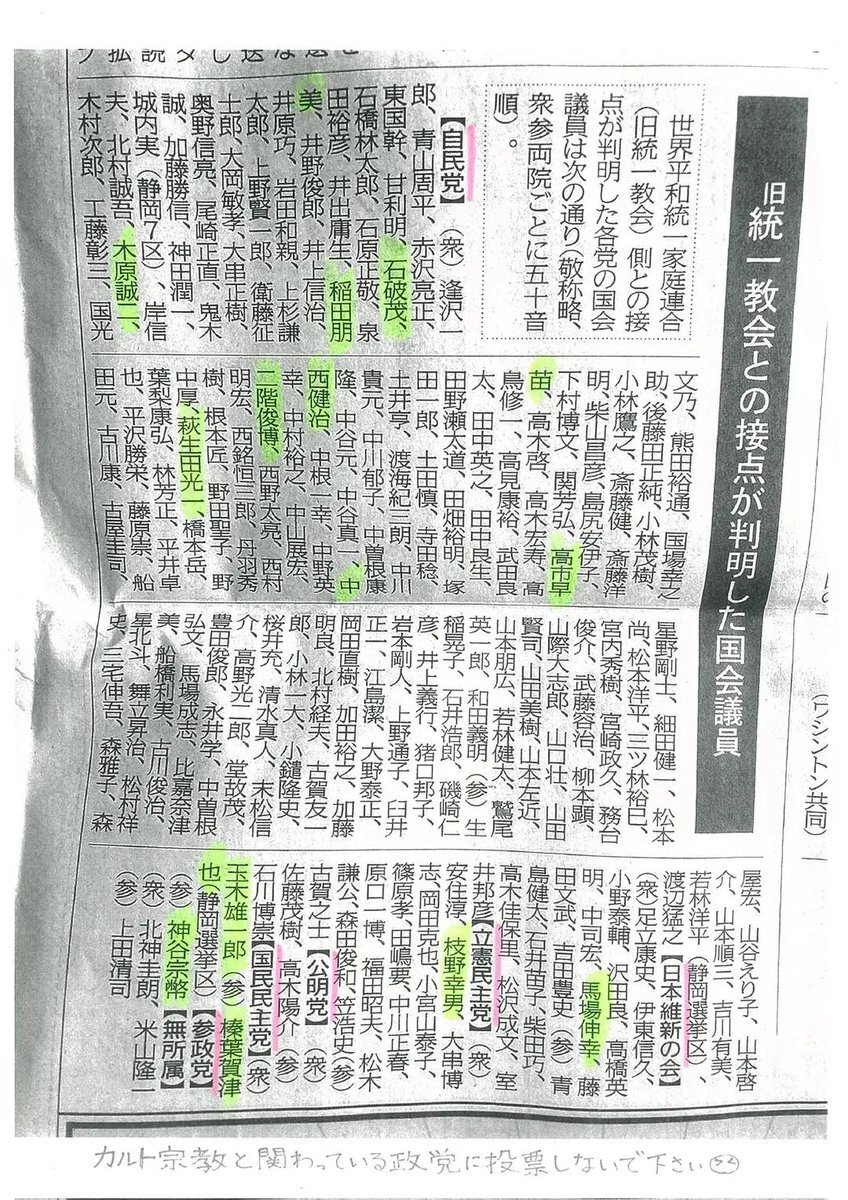 旧統一教会との接点が判明した国会議員
(ワシントン共同)
世界平和統一家庭連合
(旧統一教会)側との接
点が判明した各党の国会
議員は次の通り(敬称略、
衆参両院ごとに五十音
順)。
【自民党】(衆)逢沢一
郎、青山周平、赤沢亮正、
東国幹、甘利明、石破茂、
石橋林太郎、石原正敬、泉
田裕彦、井出庸生、稲田朋
美、井野俊郎、井上信治、
井原巧、岩田和親、上杉謙
太郎、上野賢一郎、衛藤征
士郎、大岡敏孝、大串正樹、
奥野信亮、尾崎正直、鬼木
誠、加藤勝信、神田潤一、
城内実(静岡7区)、岸信
夫、北村誠吾、木原誠二、
木村次郎、工藤彰三、国光
文乃、熊田裕通、国場幸之
助、後藤田正純、小林茂樹、
小林鷹之、斎藤健、斎藤洋
明、柴山昌彦、島尻安伊子、
下村博文、関芳弘、高市早
苗、高木啓、高木宏寿、高
鳥修一、高見康裕、武田良
太、田中英之、田中良生、
田野瀬太道、田畑裕明、塚
田一郎、土田慎、寺田稔、
土井亨、渡海紀三朗、中川
貴元、中川郁子、中曽根康
隆、中谷元、中谷真一、中
西健治、中根一幸、中野英
幸、中村裕之、中山展宏、
二階俊博、西野太亮、西村
明宏、西銘恒三郎、丹羽秀
樹、根本匠、野田聖子、野
中厚、萩生田光一、橋本岳、
葉梨康弘、林芳正、平井卓
也、平沢勝栄、藤原崇、船
田元、古川康、古屋圭司、
星野剛士、細田健一、松本
尚、松本洋平、三ツ林裕巳、
宮内秀樹、宮崎政久、務台
俊介、武藤容治、柳本顕、
山際大志郎、山口壮、山田
賢司、山田美樹、山本左近、
山本朋広、若林健太、鷲尾
英一郎、和田義明(参)生
稲晃子、石井浩郎、磯崎仁
彦、井上義行、猪口邦子、
岩本剛人、上野通子、臼井
正一、江島潔、大野泰正、
岡田直樹、加田裕之、加藤
明良、北村経夫、古賀友一
郎、小林一大、小鑓隆史、
桜井充、清水真人、末松信
介、高野光二郎、堂故茂、
豊田俊郎、永井学、中曽根
弘文、馬場成志、比嘉奈津
美、船橋利実、古川俊治、
星北斗、舞立昇治、松村祥
史、三宅伸吾、森雅子、森
屋宏、山谷えり子、山本啓
介、山本順三、吉川有美、
若林洋平(静岡選挙区)、
渡辺猛之【日本維新の会】
(衆)足立康史、伊東信久、
小野泰輔、沢田良、高橋英
明、中司宏、馬場伸幸、藤
田文武、吉田豊史(参)青
島健太、石井苗子、柴田巧、
高木佳保里、松沢成文、室
井邦彦【立憲民主党】(衆)
安住淳、枝野幸男、大串博
志、岡田克也、小宮山泰子、
篠原孝、田嶋要、中川正春、
原口一博、福田昭夫、松木
謙公、森田俊和、笠浩史(参)
古賀之士【公明党】(衆)
佐藤茂樹、高木陽介(参)
石川博崇【国民民主党】(衆)
玉木雄一郎(参)榛葉賀津
也(静岡選挙区)【参政党】
(参)神谷宗幣【無所属】
(衆)北神圭朗、米山隆一
(参)上田清司
カルト宗教と関わっている政党に投票しないで下さい